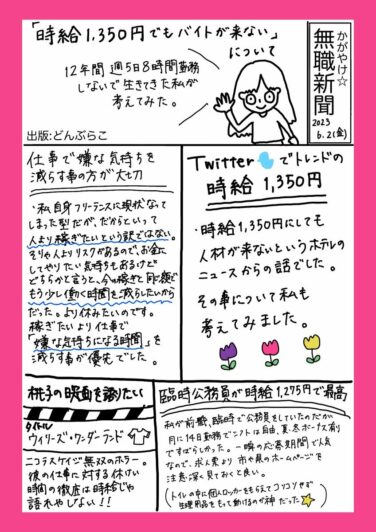 「時給1,350円でもバイトが来ない」
について
12年間 週5日8時間勤務
しないで生きてきた私が
考えてみた。
出版:どんぶらこ
かがやけ☆
無職新聞
2023
6.2(金)
仕事で嫌な気持ちを
減らす事の方が大切
・私自身フリーランスに現状なって
しまった型だが、だからといって
人より稼ぎたいという訳ではない。
そりゃ人よりリスクがあるので、お金に
してやりたい気持ちもあるけど
どちらかと言うと、今の稼ぎと同じ額で
もう少し働く時間を減らしたいから
だった。より休みたいのです。
稼ぎたいより仕事で
「嫌な気持ちになる時間」を
減らす事が優先でした。
Twitterでトレンドの
時給 1,350円
・時給1,350円にしても
人材が来ないというホテルの
ニュースからの話でした。
その事について私も
考えてみました。
桃子の映画を語りたい
タイトル
ウィリーズ・ワンダーランド
ニコラスケイジ無双のホラー。
彼の仕事に対する休けい
時間の徹底は時給じゃ
語れやしない!!
臨時公務員が時給1,275円で最高
私が前職、臨時で公務員をしていたのだが
月に14日勤務でシフトは自由、夏・冬ボーナス有り
ですばらしかった。一瞬の応募期間で人気
なので、求人票より市や県のホームページを
注意深く見ておくと良い。
(トイレの中に個人ロッカーをもらえてコソコソせず
生理用品をもって動けるのが神だった)